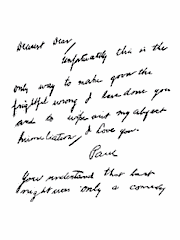 Dearest Dear,
Unfortunately this is the
only way to make good the
frightful wrong I have done you
and to wipe out my abject
humiliation, I love you.
Paul
You understand that last
night was only a comedy